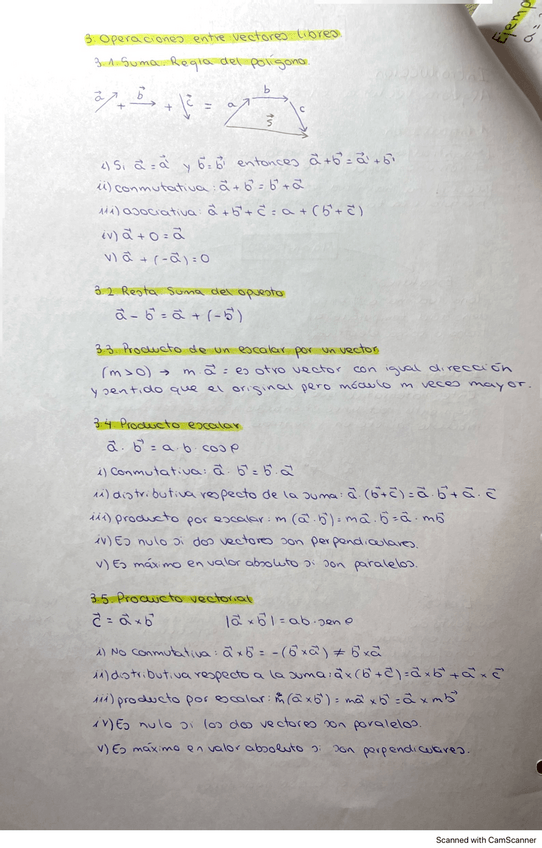 Ejemp
a=
3. Operaciones entre vectores libres.
3.1. Suma. Regla del polígono
a⃗ + b⃗ + c⃗ = a b c s⃗
i) Si a⃗ = a⃗' y b⃗ = b⃗' entonces a⃗ + b⃗ = a⃗' + b⃗'
ii) conmutativa: a⃗ + b⃗ = b⃗ + a⃗
iii) asociativa: a⃗ + b⃗ + c⃗ = a + (b⃗ + c⃗)
iv) a⃗ + 0 = a⃗
v) a⃗ + (-a⃗) = 0
3.2. Resta Suma del opuesto
a⃗ - b⃗ = a⃗ + (-b⃗)
3.3. Producto de un escalar por un vector
(m>0) → m a⃗ = es otro vector con igual dirección
y sentido que el original pero módulo m veces mayor.
3.4. Producto escalar
a⃗ · b⃗ = a · b · cos θ
i) Conmutativa: a⃗ · b⃗ = b⃗ · a⃗
ii) distributiva respecto de la suma: a⃗ · (b⃗ + c⃗) = a⃗ · b⃗ + a⃗ · c⃗
iii) producto por escalar: m (a⃗ · b⃗) = m a⃗ · b⃗ = a⃗ · m b⃗
iv) Es nulo si dos vectores son perpendiculares.
v) Es máximo en valor absoluto si son paralelos.
3.5. Producto vectorial
c⃗ = a⃗ × b⃗ |a⃗ × b⃗| = ab · sen θ
i) No conmutativa: a⃗ × b⃗ = -(b⃗ × a⃗) ≠ b⃗ × a⃗
ii) distributiva respecto a la suma: a⃗ × (b⃗ + c⃗) = a⃗ × b⃗ + a⃗ × c⃗
iii) producto por escalar: m (a⃗ × b⃗) = m a⃗ × b⃗ = a⃗ × m b⃗
iv) Es nulo si los dos vectores son paralelos.
v) Es máximo en valor absoluto si son perpendiculares.
Scanned with CamScanner